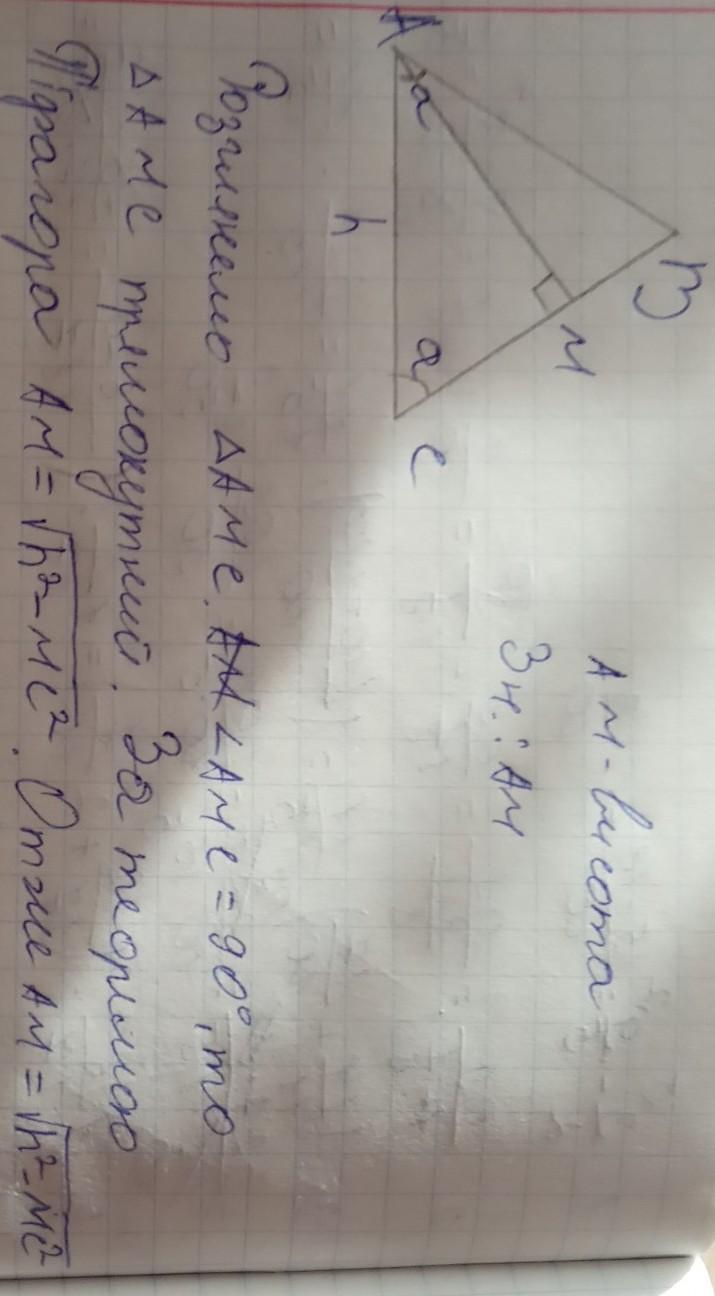 B
A
a
M
h
a
C
AM - висота
Зн.: AM
Розглянемо ΔAMC. ∠AMC = 90°, то
ΔAMC прямокутний. За теоремою
Піфагора AM = √h²-MC². Отже AM = √h²-MC²